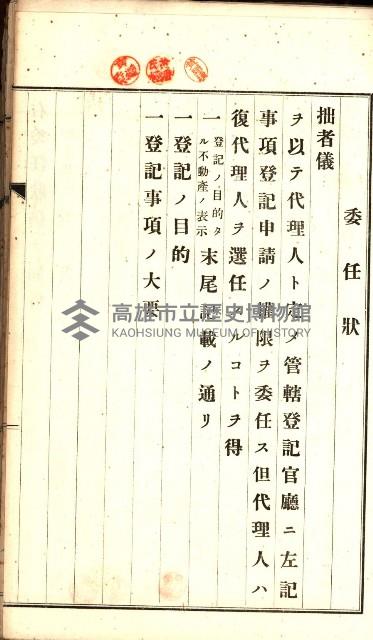 委任狀
拙者儀
ヲ以テ代理人ト定メ管轄登記官廳ニ左記
事項登記申請ノ權限ヲ委任ス但代理人ハ
復代理人ヲ選任スルコトヲ得
一登記ノ目的タル不動產ノ表示 末尾記載ノ通リ
一登記ノ目的
一登記事項ノ大要
高雄市立歷史博物館
KAOHSIUNG MUSEUM OF HISTORY